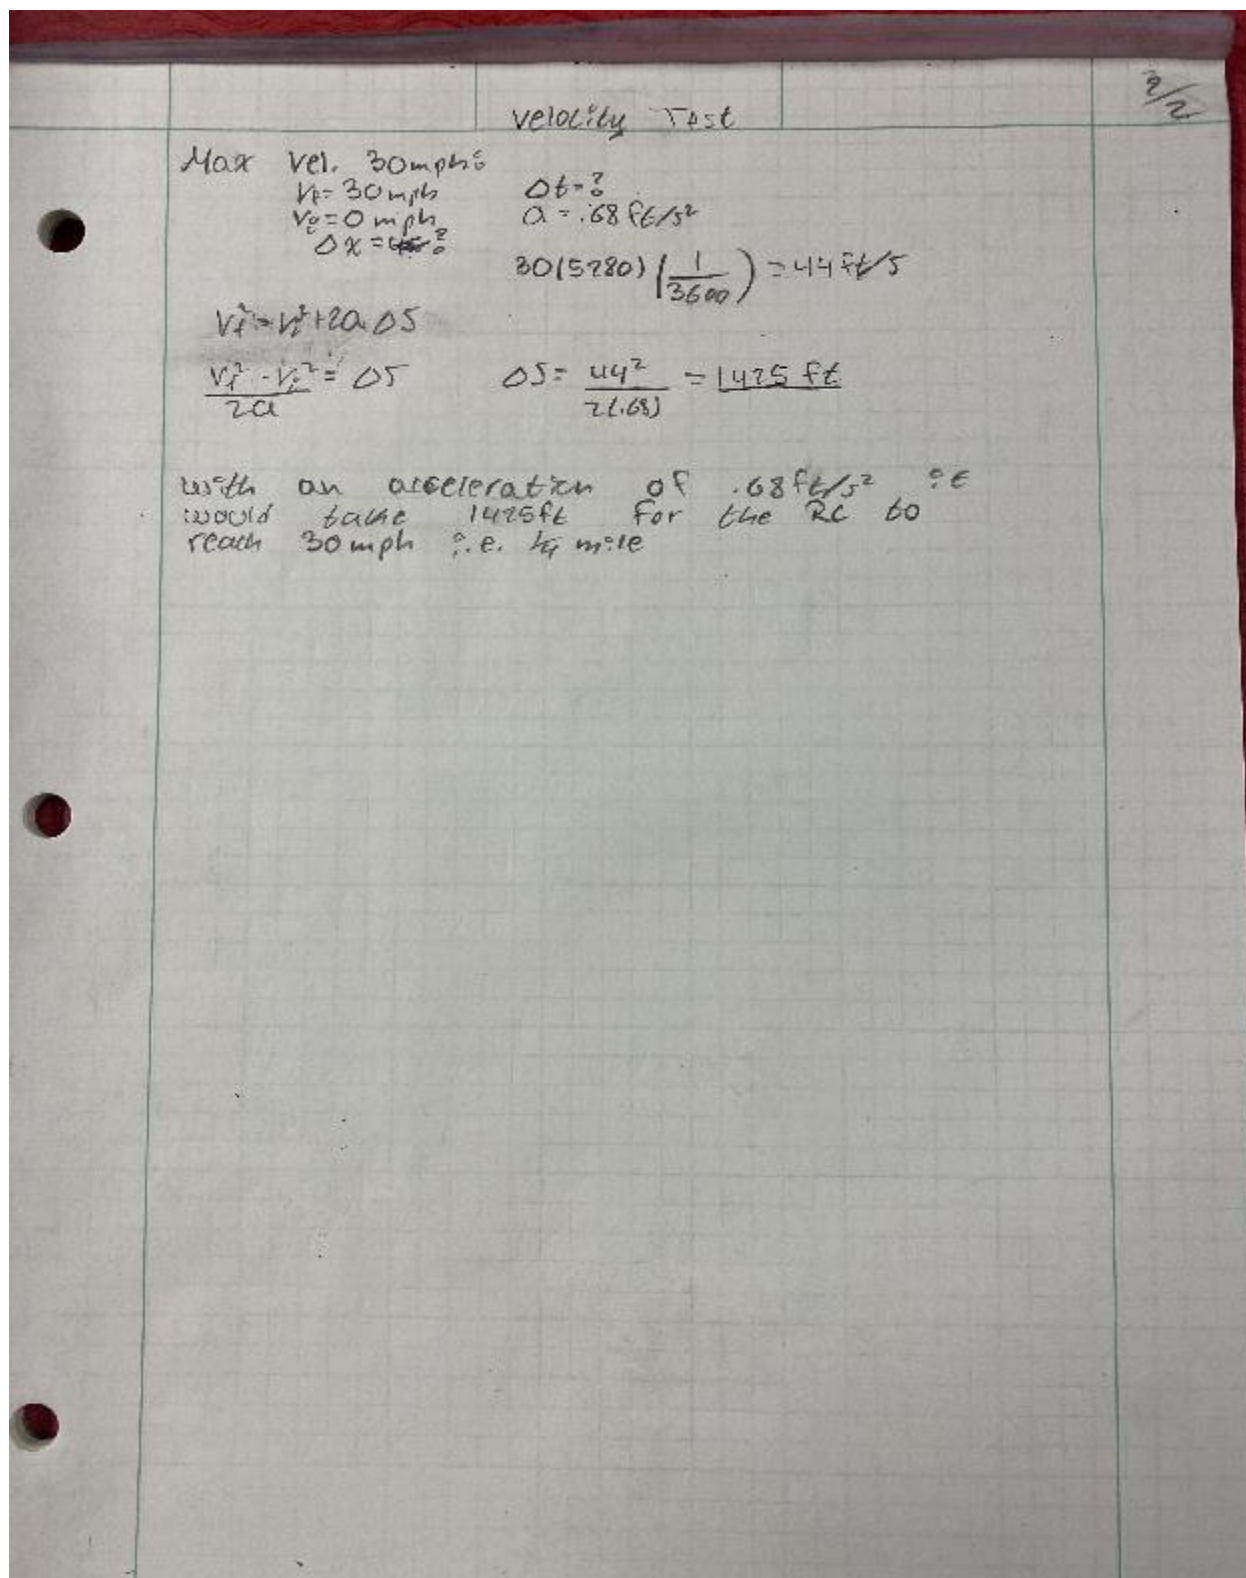 2/2
Velocity Test
Max Vel. 30mph:
Vf = 30 mph Δt = ?
Vi = 0 mph a = .68 ft/s²
Δx = ?
30(5280) (1/3600) = 44 ft/s
Vf² = Vi² + 2a ΔS
Vf² - Vi² / 2a = ΔS ΔS = 44² / 2(.68) = 1425 ft
with an acceleration of .68ft/s² it
would take 1425ft for the RC to
reach 30mph i.e. 1/4 mile